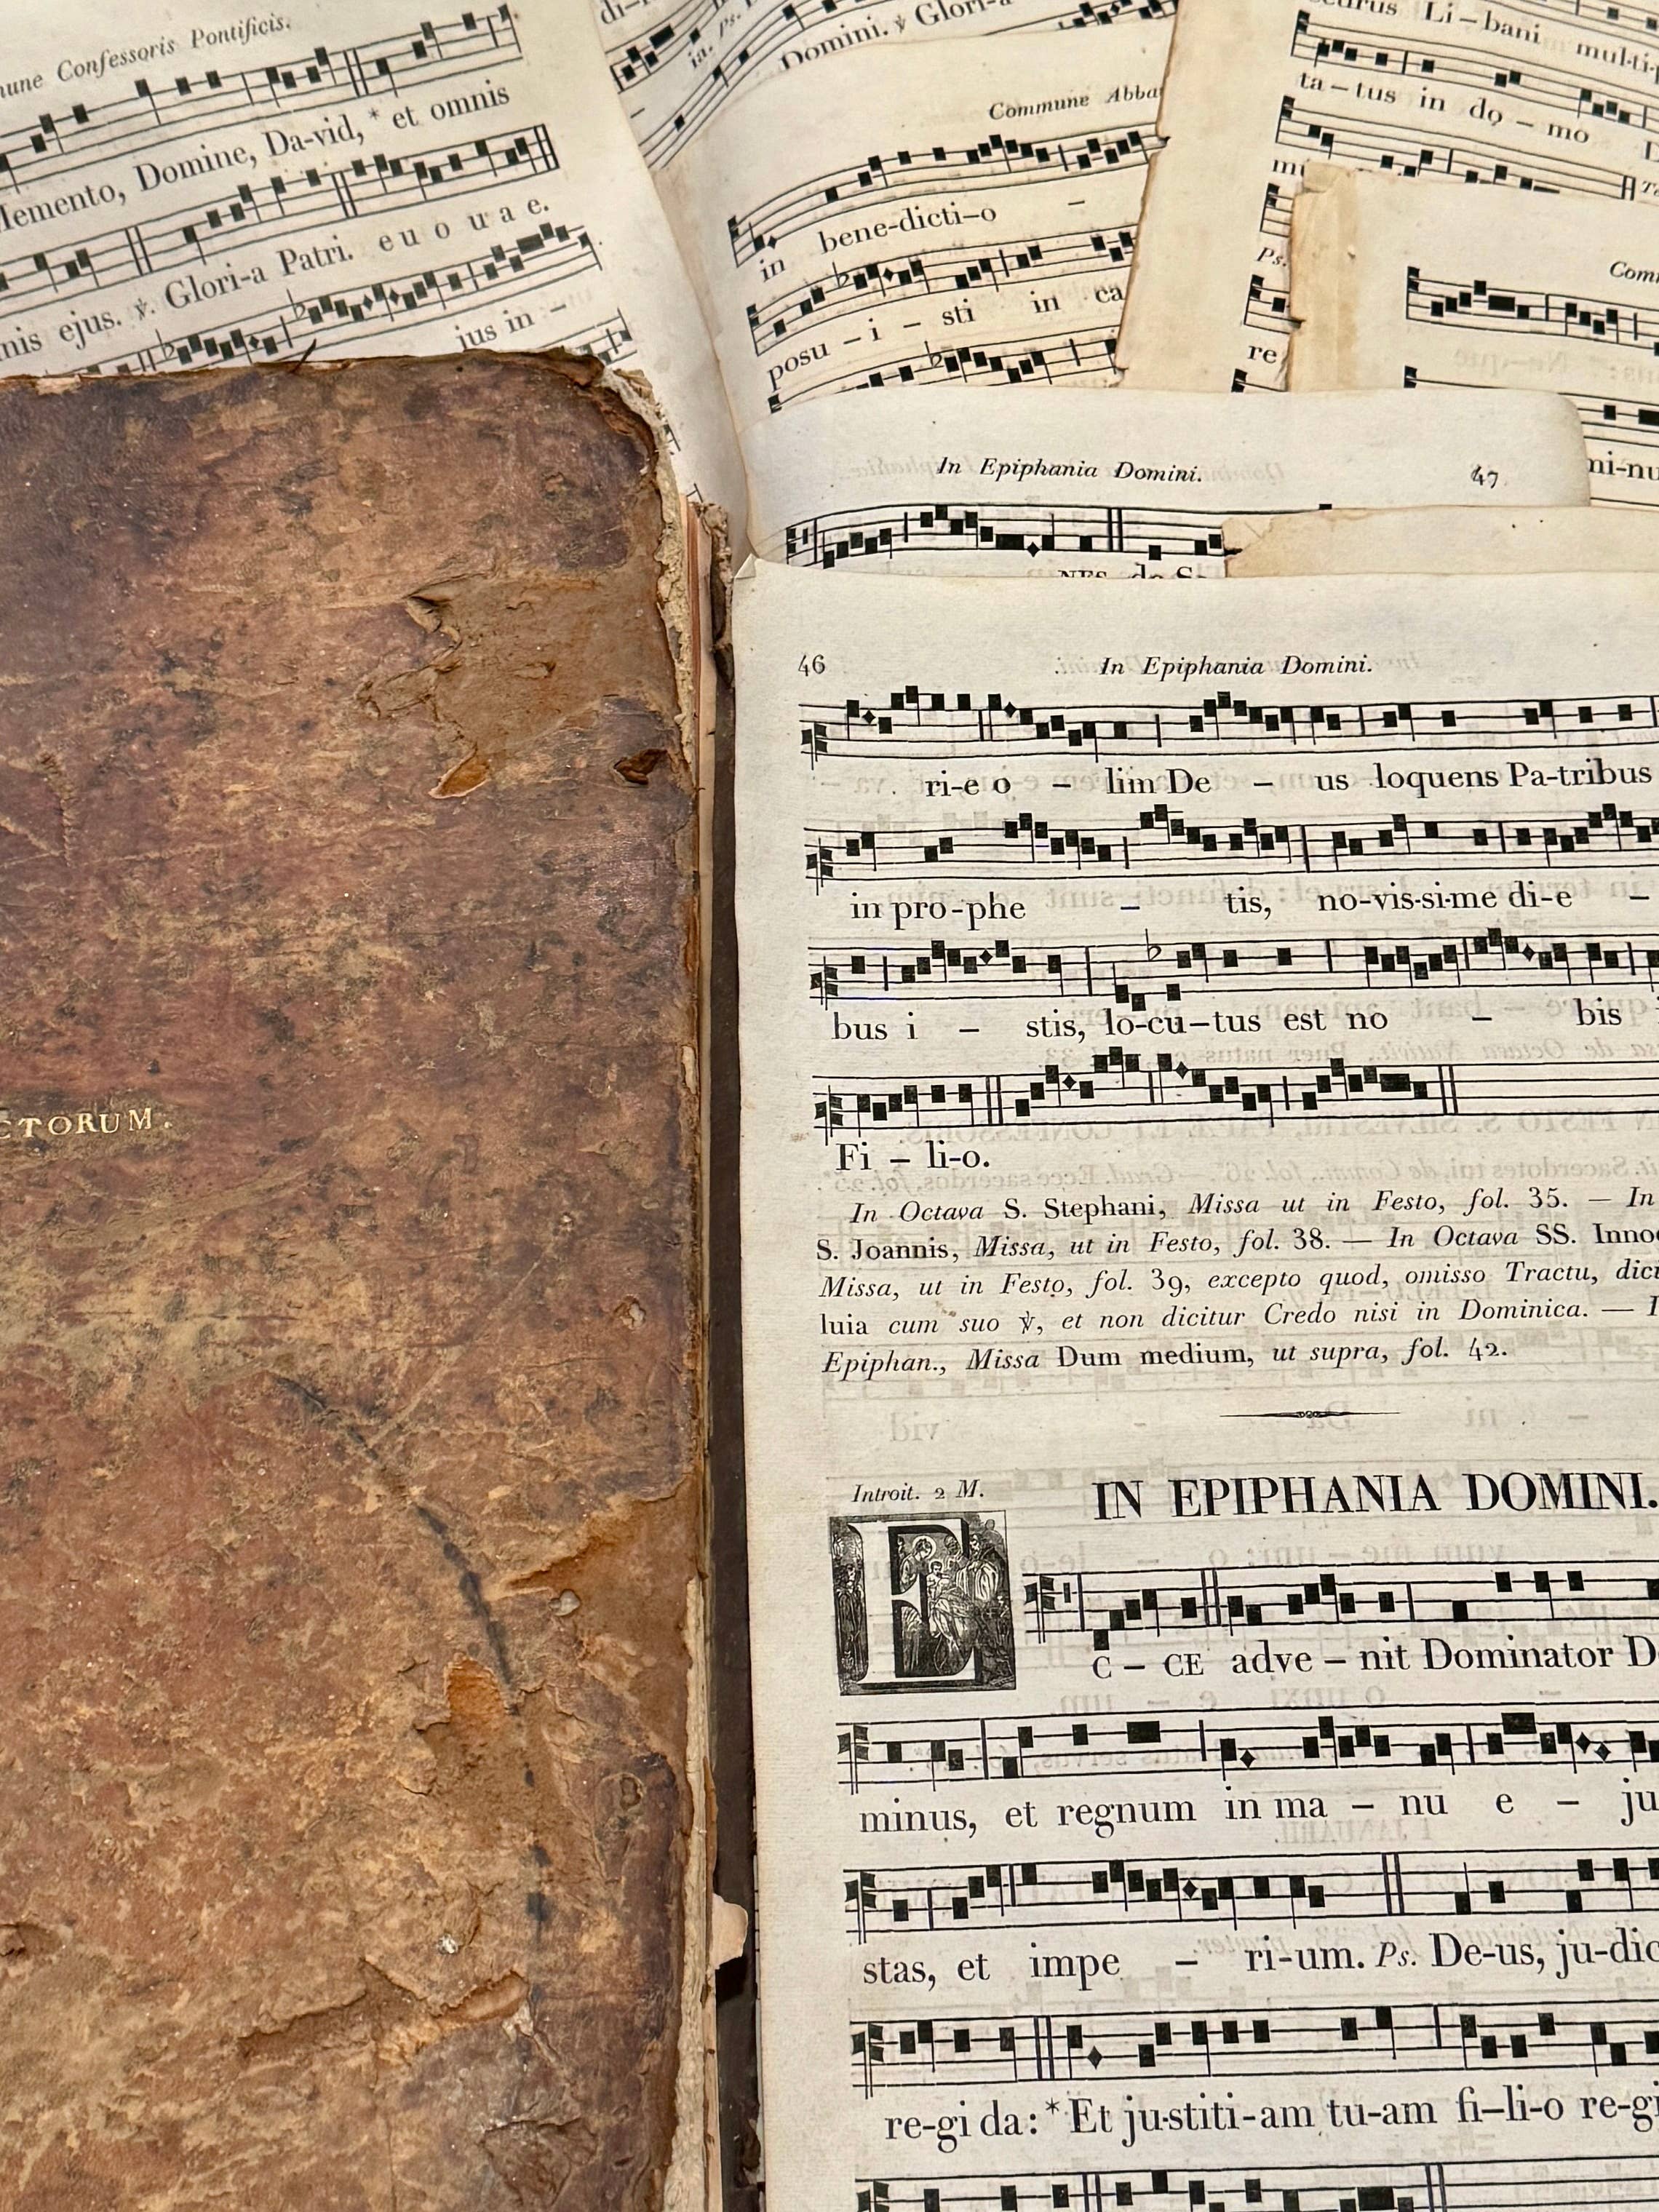 Confessoris Pontificis.
Memento, Domine, Da-vid, * et omnis
ejus. ℣. Glori-a Patri. e u o u a e.
jus in –
Domini. ℣ Glori-a
in. Ps.
Commune
in bene-dicti–o –
posu – i – sti in ca
Li–bani multi-p
ta–tus in do – mo
Ps.
re
In Epiphania Domini. 47
CTORUM.
46 In Epiphania Domini.
ri-e o – lim De – us loquens Pa-tribus
in pro-phe – tis, no-vis-si-me di-e –
bus i – stis, lo-cu–tus est no – bis
Fi – li-o.
In Octava S. Stephani, Missa ut in Festo, fol. 35. — In
S. Joannis, Missa, ut in Festo, fol. 38. — In Octava SS. Inno
Missa, ut in Festo, fol. 39, excepto quod, omisso Tractu, dici
luia cum suo ℣, et non dicitur Credo nisi in Dominica. —
Epiphan., Missa Dum medium, ut supra, fol. 42.
Introit. 2 M.
IN EPIPHANIA DOMINI.
E C – CE adve – nit Dominator D
minus, et regnum in ma – nu e – ju
stas, et impe – ri-um. Ps. De-us, ju-dic
re-gi da: * Et ju-stiti-am tu-am fi–li-o re-gi